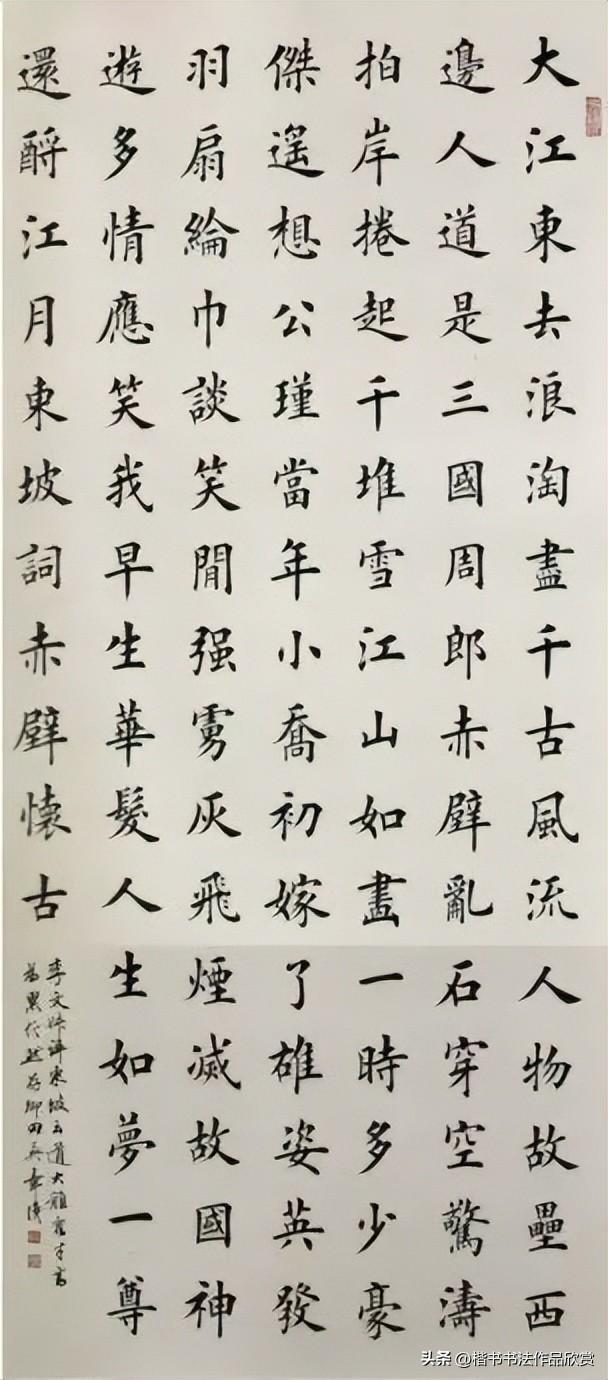 大江東去浪淘盡千古風流人物故壘西
邊人道是三國周郎赤壁亂石穿空驚濤
拍岸捲起千堆雪江山如畫一時多少豪
傑遙想公瑾當年小喬初嫁了雄姿英發
羽扇綸巾談笑閒强虜灰飛煙滅故國神
遊多情應笑我早生華髮人生如夢一尊
還酹江月東坡詞赤壁懷古
東坡云道大難容才高
為累
头条 @楷书书法作品欣赏